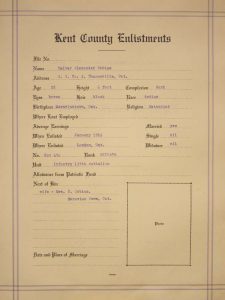 Kent County Enlistments
File No.
Name Walter Alexander
Address R. R. No. 1, Thamesville, Ont.
Age Height 6 feet Complexion dark
Eyes brown Hair black Race Indian
Birthplace Moraviantown, Ont. Religion
Where Last Employed
Average Earnings Married yes
When Enlisted January Single nil
Where Enlisted London, Ont. Widower nil
No. Rank private
Unit Infantry 135th Battalion
Allowance from Patriotic Fund
Next of Kin
wife - Mrs.
Ont.
Photo
Date and Place of Marriage